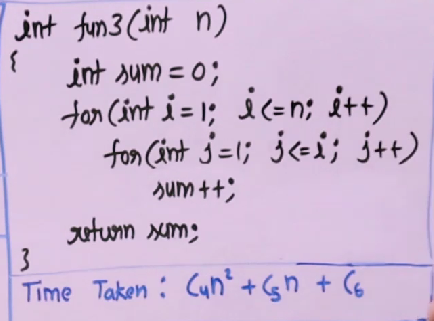 int fun3(int n)
{
int sum = 0;
for(int i = 1; i <= n; i++)
for(int j = 1; j <= i; j++)
sum++;
return sum;
}
Time Taken : C₄n² + C₅n + C₆